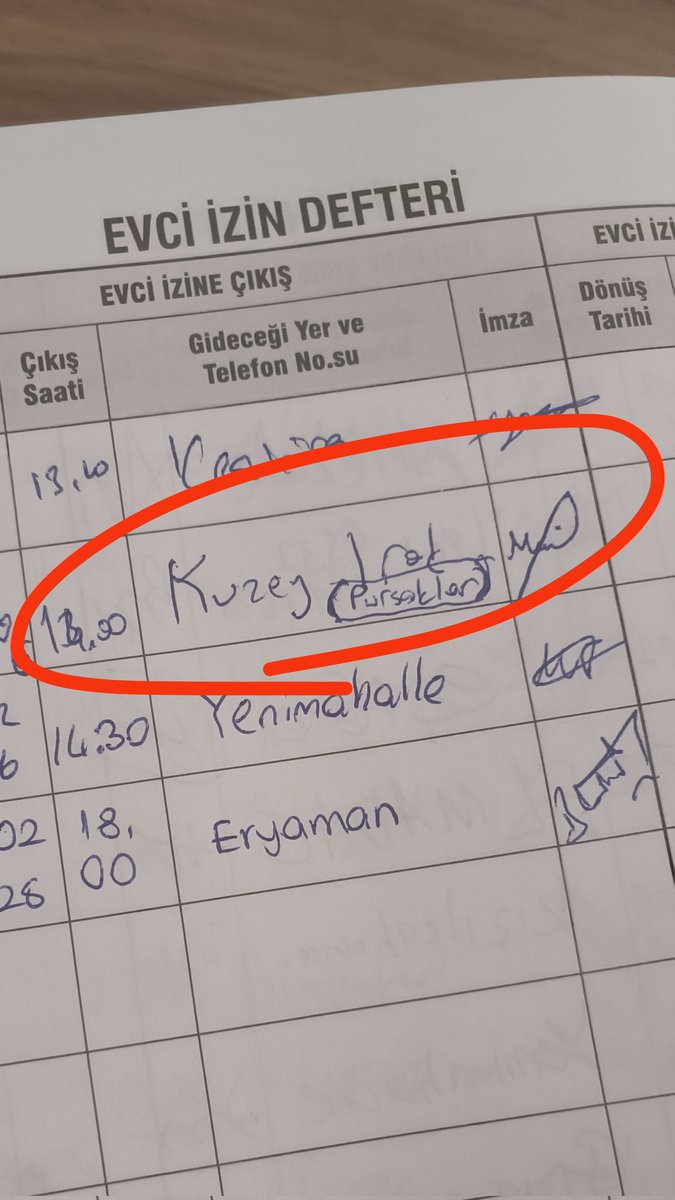 EVCİ İZİN DEFTERİ
EVCİ İZİNE ÇIKIŞ
EVCİ İZİ
Çıkış
Saati
Gideceği Yer ve
Telefon No.su
İmza
Dönüş
Tarihi
13,40
Kuzey Irak
(Pursaklar)
14:30 Yenimahalle
02 18, Eryaman
28 00